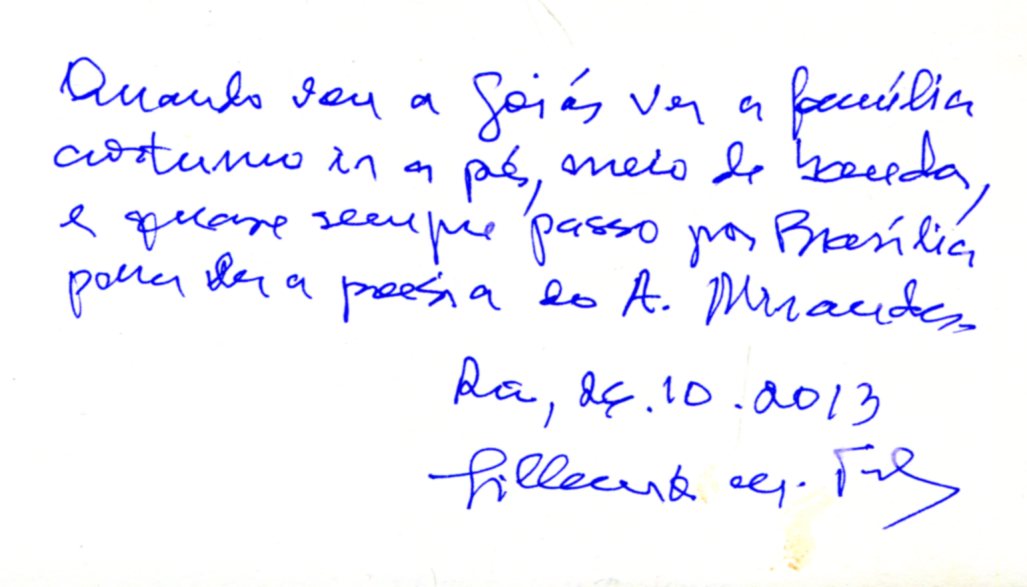 Quando vou a Goiás ver a família
costumo ir a pés, meio de banda,
e quase sempre passo por Brasília
para ver a poesia do A. Miranda.
Rio, 24.10.2013
Gilberto M. Teles